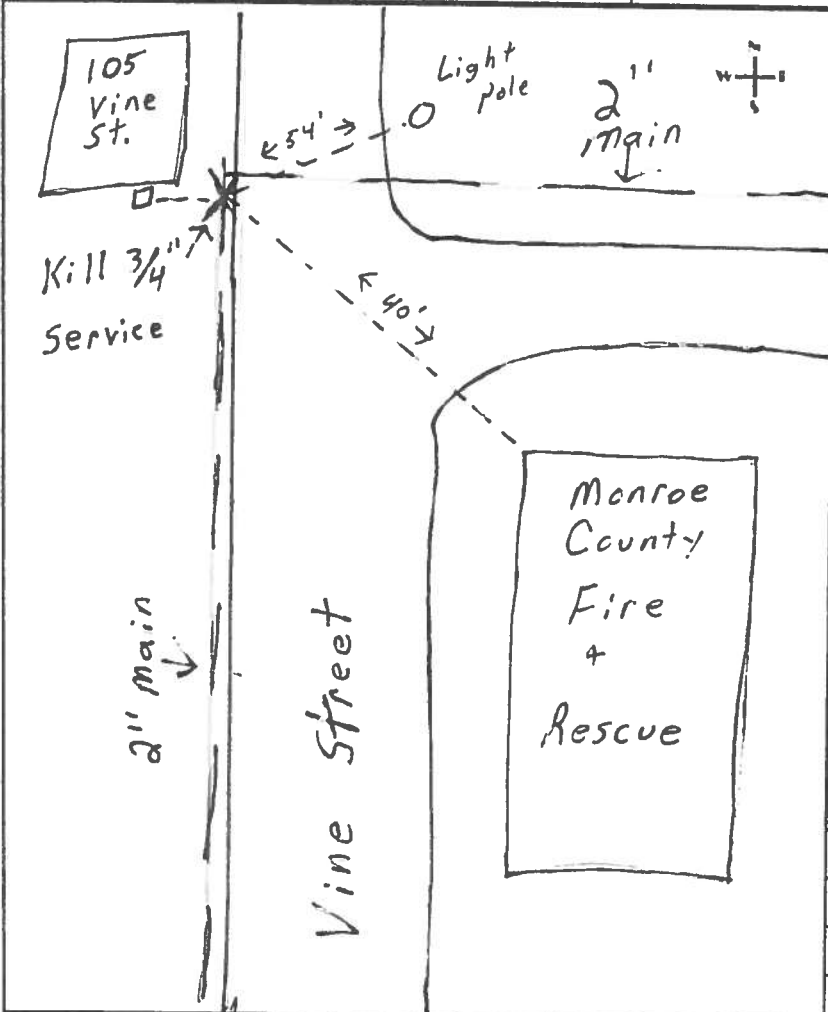 105
Vine
St.
Light
pole
2"
main
N
W E
S
54'
Kill 3/4"
Service
40'
Monroe
County
Fire
+
Rescue
2" main
Vine Street